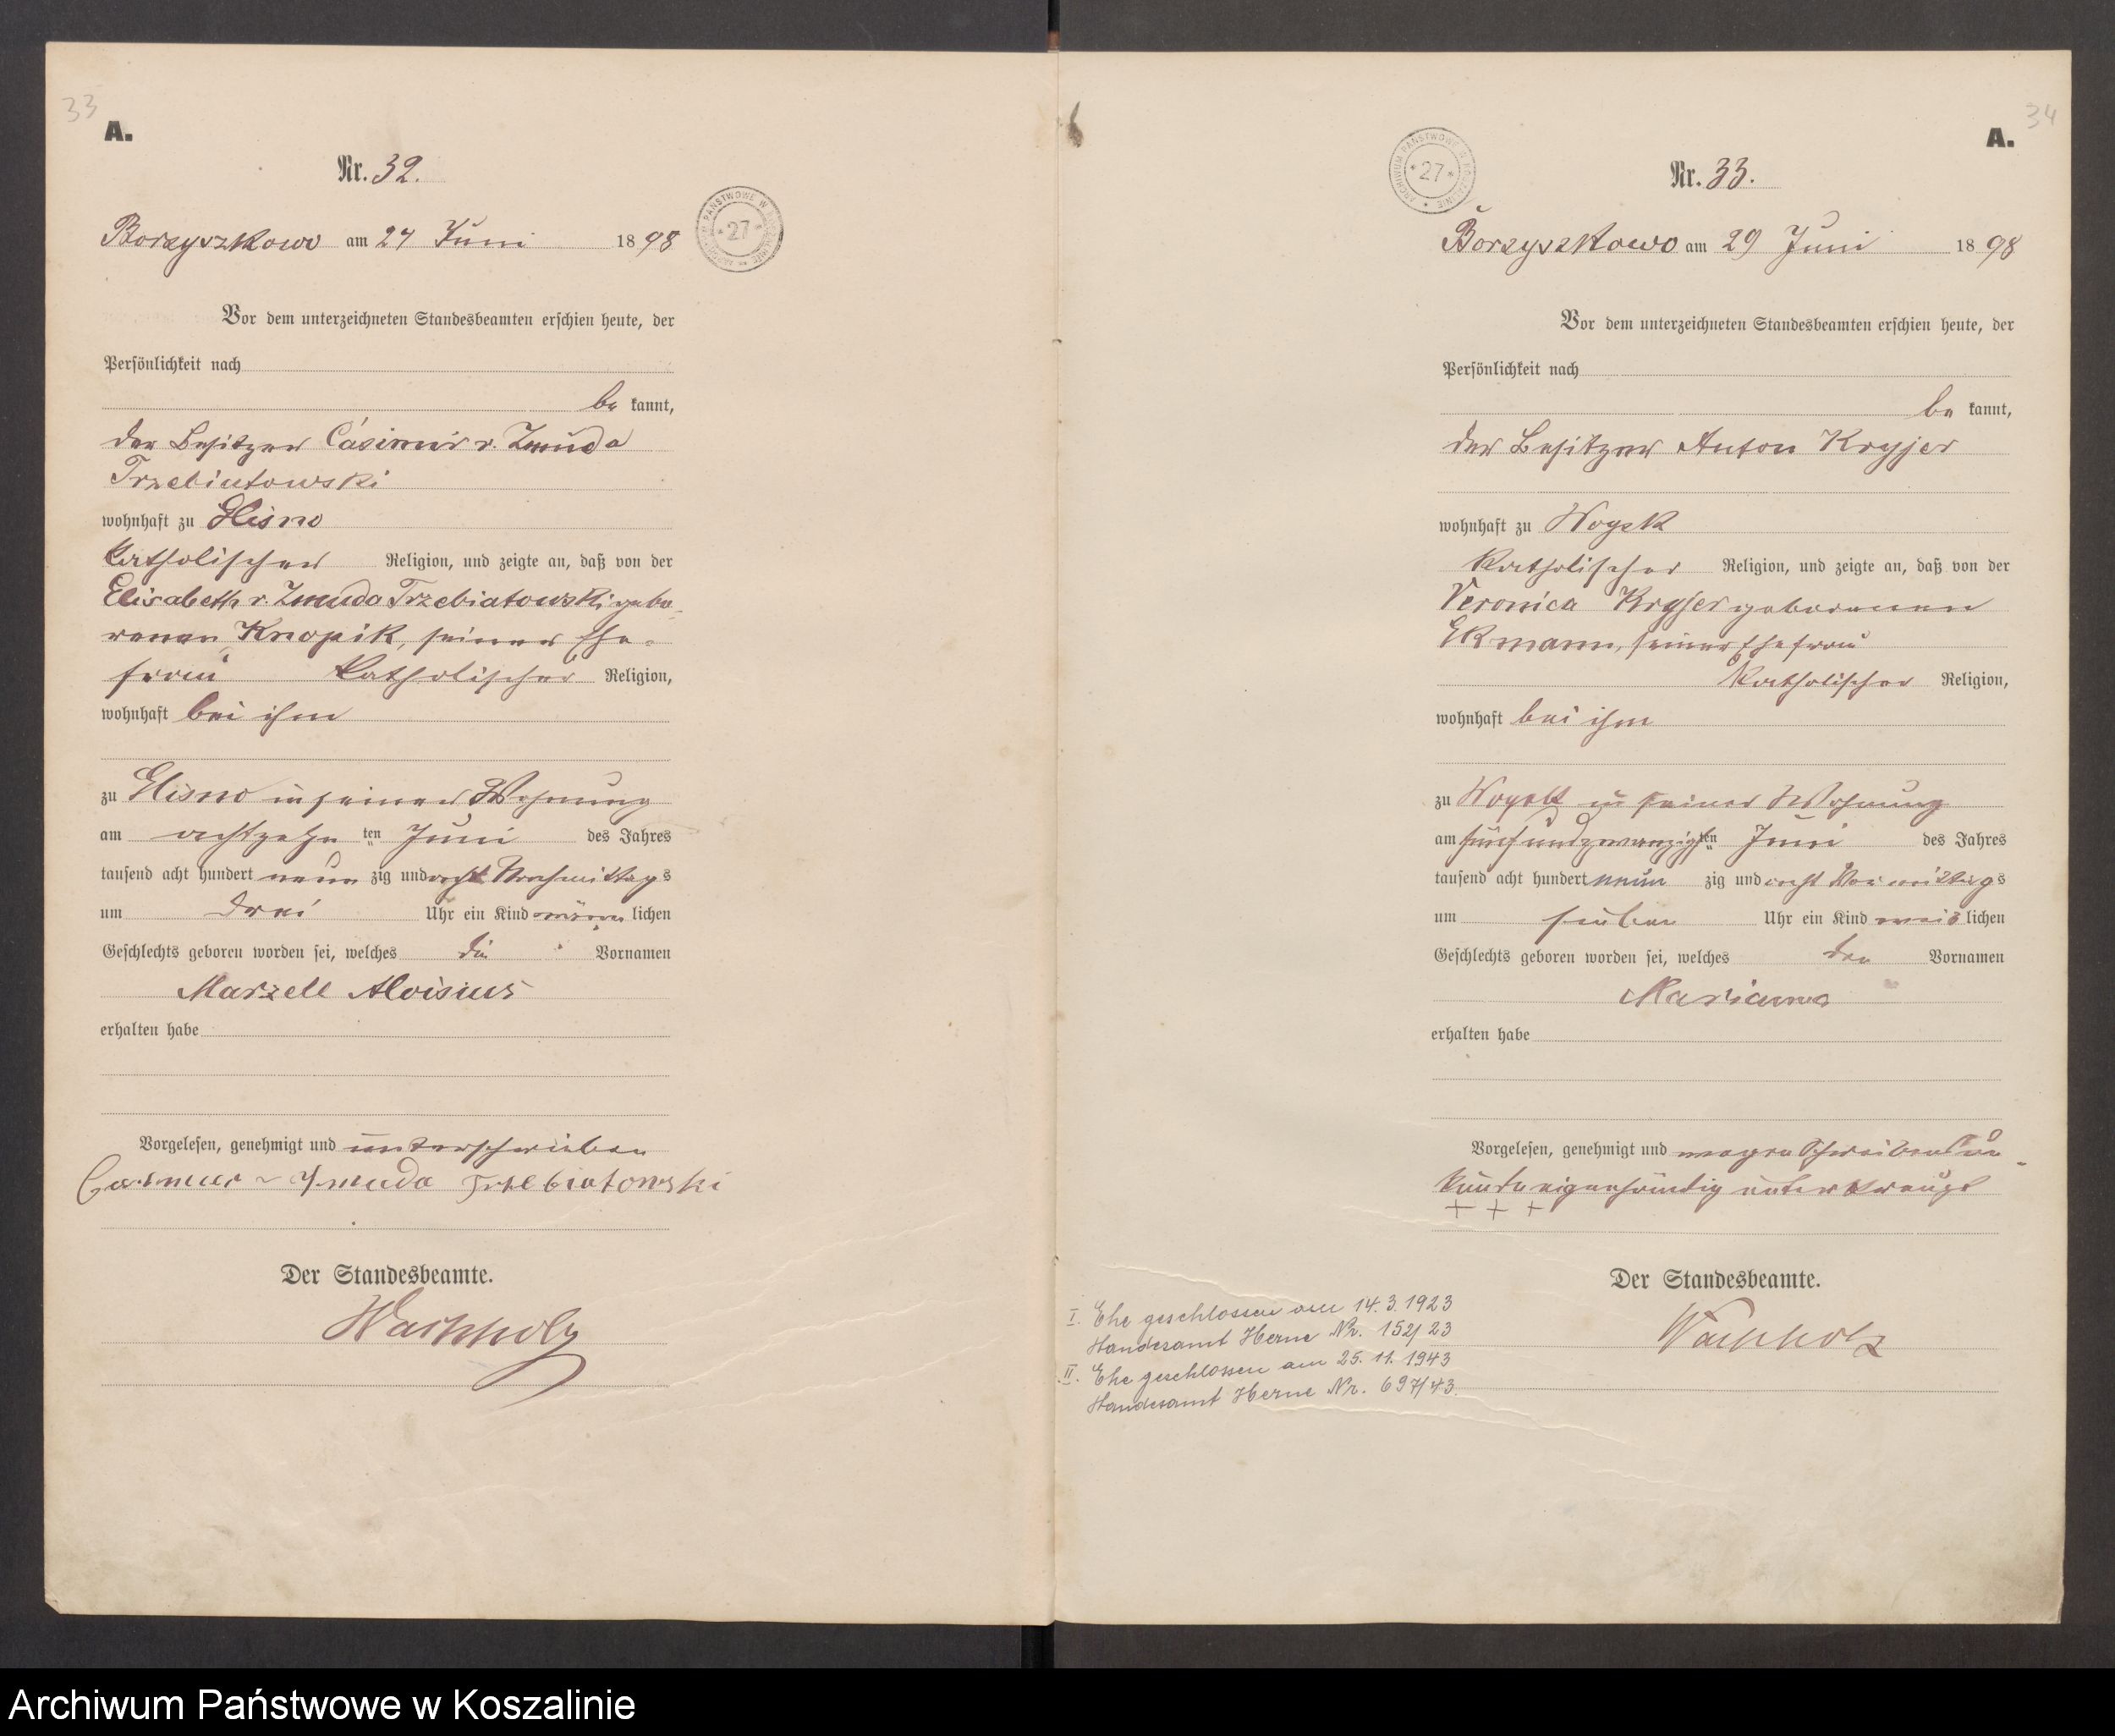 33
A.
Nr. 32.
ARCHIWUM PAŃSTWOWE W KOSZALINIE
* 27 *
Borzyszkowo am 24 Juni 1898
Vor dem unterzeichneten Standesbeamten erschien heute, der
Persönlichkeit nach
be kannt,
der Besitzer Casimir v. Zmuda
Trzebiatowski
wohnhaft zu Glisno
katholischer Religion, und zeigte an, daß von der
Elisabeth v. Zmuda Trzebiatowski gebo-
renen Knopik, seiner Ehe-
frau katholischer Religion,
wohnhaft bei ihm
zu Glisno in seiner Wohnung
am achtzehn ten Juni des Jahres
tausend acht hundert neun zig und acht Nachmittags
um drei Uhr ein Kind männ lichen
Geschlechts geboren worden sei, welches die Vornamen
Marzell Aloisius
erhalten habe
Vorgelesen, genehmigt und unterschrieben
Casimir v Zmuda Trzebiatowski
Der Standesbeamte.
Wachholz
34
A.
ARCHIWUM PAŃSTWOWE W KOSZALINIE
* 27 *
Nr. 33.
Borzyszkowo am 29 Juni 1898
Vor dem unterzeichneten Standesbeamten erschien heute, der
Persönlichkeit nach
be kannt,
der Besitzer Anton Kryjer
wohnhaft zu Woysk
katholischer Religion, und zeigte an, daß von der
Veronica Kryjer geborenen
Ekmann, seiner Ehefrau
katholischer Religion,
wohnhaft bei ihm
zu Woysk in seiner Wohnung
am fünfundzwanzigsten Juni des Jahres
tausend acht hundert neun zig und acht Vormittags
um sieben Uhr ein Kind weib lichen
Geschlechts geboren worden sei, welches den Vornamen
Marianna
erhalten habe
Vorgelesen, genehmigt und wegen Schreibensun-
kunde eigenhändig unterkreuzt
+ + +
Der Standesbeamte.
Wachholz
I. Ehe geschlossen am 14.3.1923
Standesamt Herne Nr. 152/23
II. Ehe geschlossen am 25.11.1943
Standesamt Herne Nr. 697/43.
Archiwum Państwowe w Koszalinie